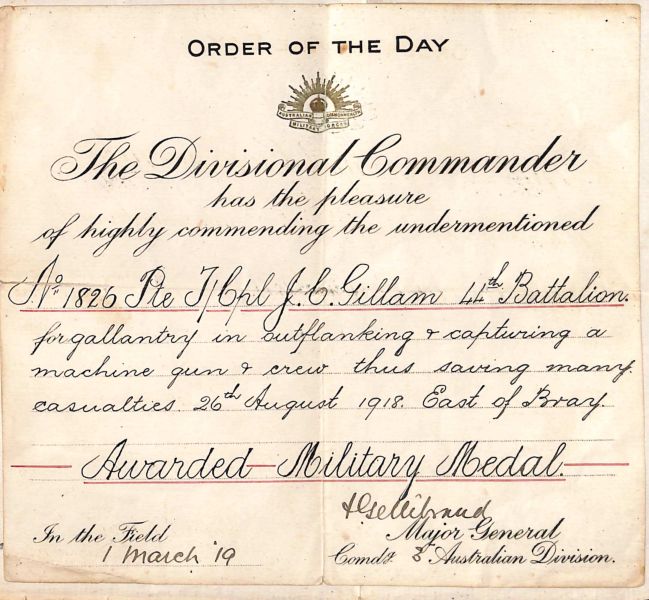 ORDER OF THE DAY
AUSTRALIAN COMMONWEALTH
MILITARY FORCES
The Divisional Commander
has the pleasure
of highly commending the undermentioned
No. 1826 Pte T/Cpl J.C. Gillam 44th Battalion.
for gallantry in outflanking & capturing a
machine gun & crew thus saving many
casualties. 26th August 1918. East of Bray.
Awarded Military Medal.
J Gellibrand
In the Field
Major General
1 March '19
Comdg. 3 Australian Division.